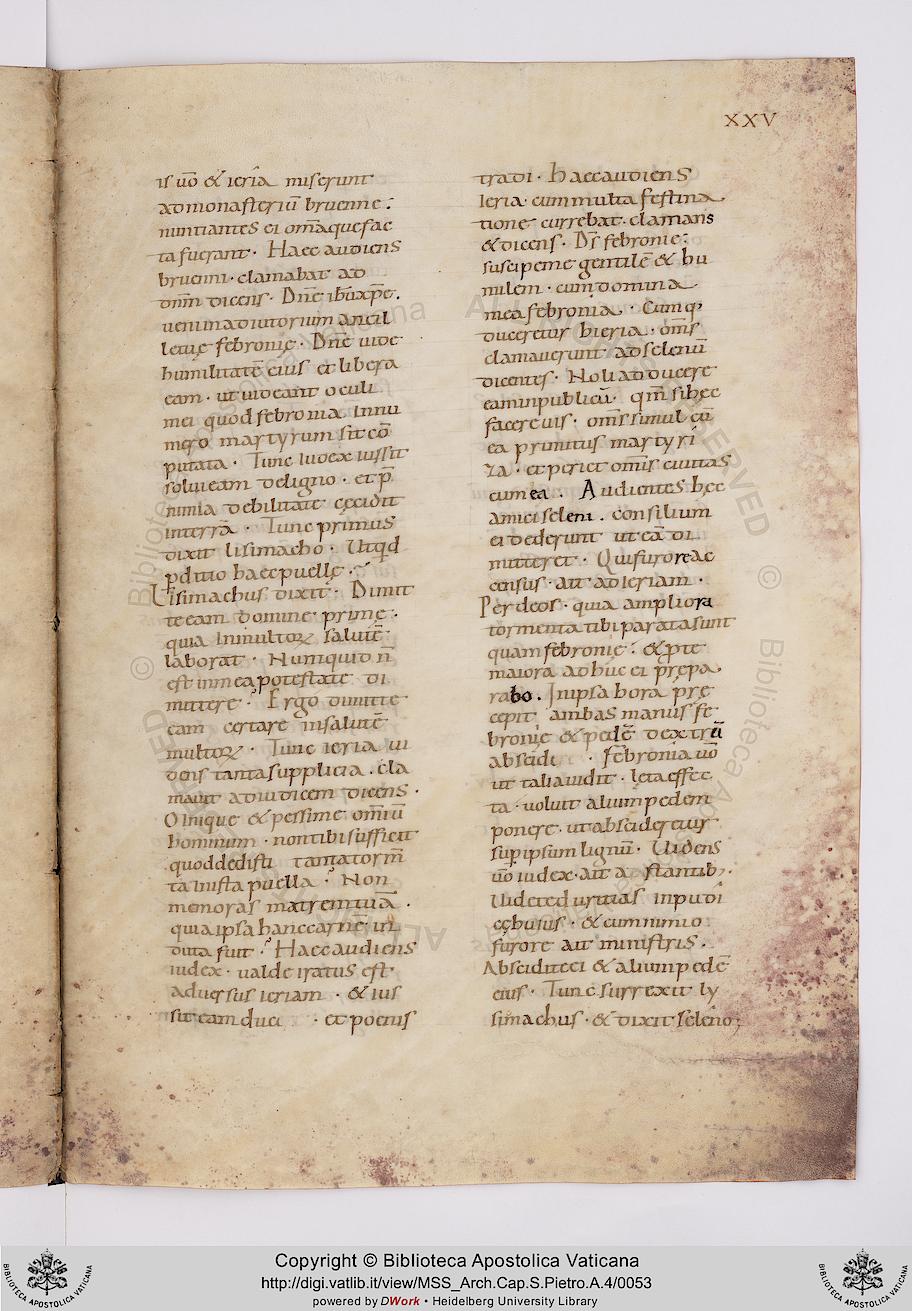 XXV
is uō & ieria miserunt
ad monasteriū bruenne :
nuntiantes ei om̄aque fac
ta fuerant · Haec audiens
bruenni · clamabat ad
dnm dicens · Dn̄e ihū xp̄e ·
ueni in adiutorium ancil
lę tuę febronię · Dn̄e uide
humilitatē eius et libera
eam · ut uideant oculi
mei quod febronia innu
mero martyrum sit cō
putata · Tunc iudex iussit
solui eam de ligno · et p̄
nimia debilitate cecidit
in terrā · Tunc primus
dixit lisimacho · Utqd
pditio haec puellę ·
Lisimachus dixit · Dimit
te eam domine prime ·
quia in multoꝝ salutē
laborat · Numquid n̄
est in mea potestate di
mittere · Ergo dimitte
eam certare in salutē
multoꝝ · Tunc ieria ui
dens tanta supplicia · cla
mauit ad iudicem dicens ·
O inique & pessime om̄iū
hominum · non tibi sufficit
quod dedisti tanta torm̄
ta in ista puella · Non
memoras matrem tuā ·
quia ipsa hanc carnē in
duta fuit · Haec audiens
iudex · ualde iratus est ·
aduersus ieriam · & ius
sit eam duci · et poenis
tradi · Haec audiens
Ieria · cum multa festina
tione currebat · clamans
& dicens · Ds̄ febronię :
suscipe me gentilē & hu
milem · cum domina
mea febronia · Cumq;
duceretur hieria · om̄s
clamauerunt ad selenū
dicentes · Noli adducere
eam in publicū · qm̄ si hęc
facere uis · om̄s simul cū
ea primitus martyri
za · et periet om̄is ciuitas
cum ea · Audientes hęc
amici seleni · consilium
ei dederunt ut eā di
mitteret · Qui furore ac
census · ait ad ieriam ·
Per deos · quia ampliora
tormenta tibi parata sunt
quam febronię · & p te
maiora adhuc ei prępa
rabo · In ipsa hora pre
cepit ambas manus fe
bronię & pedē dextrū
abscidi · febronia uō
ut talia uidit · lęta effec
ta · uoluit alium pedem
ponere · ut abscideretur
sup ipsum lignū · Uidens
uō iudex · ait adstantib; ·
Uidete duritias inpudi
cę huius · & cum nimio
furore ait ministris ·
Abscidite ci & alium pedē
eius · Tunc surrexit ly
simachus · & dixit seleno ;
Copyright © Biblioteca Apostolica Vaticana
http://digi.vatlib.it/view/MSS_Arch.Cap.S.Pietro.A.4/0053
powered by DWork • Heidelberg University Library